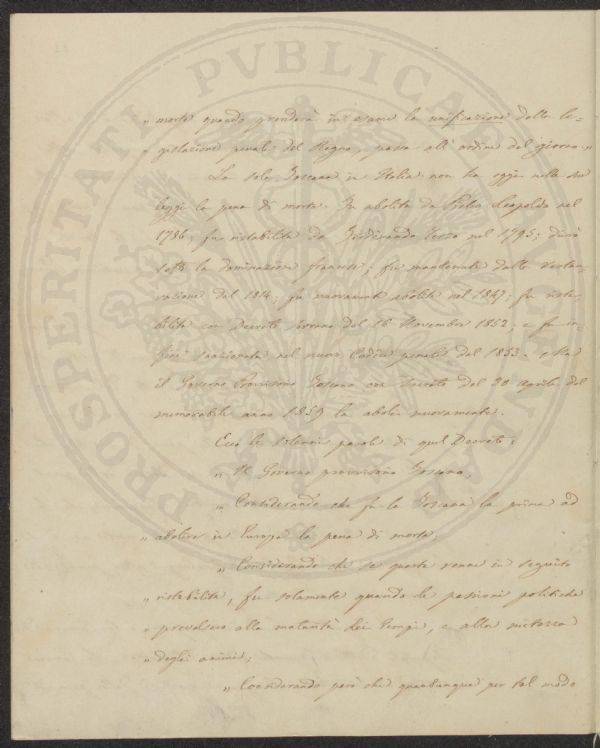 „ morte quando prenderà in esame la unificazione delle le-
„ gislazioni penali del Regno, passa all' ordine del giorno. „
La sola Toscana in Italia non ha oggi nelle sue
leggi la pena di morte. Fu abolita da Pietro Leopoldo nel
1786; fu ristabilita da Ferdinando Terzo nel 1795; durò
sotto la dominazione francese; fu mantenuta dalla restau-
razione del 1814; fu nuovamente abolita nel 1847; fu rista-
bilita con Decreto Sovrano del 16 Novembre 1852; e fu in-
fine sanzionata nel nuovo Codice penale del 1853. Ma
il Governo Provvisorio Toscano con Decreto del 30 Aprile del
memorabile anno 1859 la abolì nuovamente.
Ecco le solenni parole di quel Decreto:
„ Il Governo provvisorio Toscano,
„ Considerando che fu la Toscana la prima ad
„ abolire in Europa la pena di morte;
„ Considerando che se questa venne in seguito
„ ristabilita, fu solamente quando le passioni politiche
„ prevalsero alla maturità dei tempi, e alla mitezza
„ degli animi;
„ Considerando però che quantunque per tal modo
PROSPERITATI PVBLICAE AVGENDAE